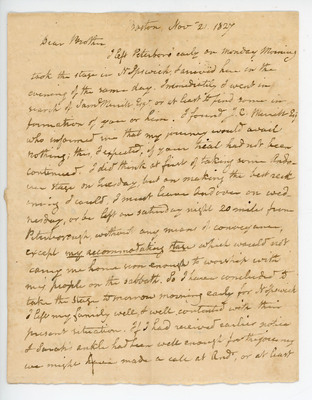 Boston, Nov 21. 1827
Dear Brother
I left Peterboro' early on Monday Morning
took the stage in N. Ipswich, & arrived here in the
evening of the same day. Immediately I went in
search of Saml Merritt Esqr or at least to find some in
formation of you or him. I found J. C. Merritt Esq
who informed me that my journey would avail
nothing; this I expected, if your heal had not been
continued. I did think at first of taking some Ando-
ver stage on tuesday, but on making the best reck
oning I could, I must leave Andover on wed
nesday, or be left on saturday night 20 miles from
Peterborough, without any means of conveyance,
except my accommodating stage which would not
carry me home soon enough to worship with
my people on the sabbath. So I have concluded to
take the stage tomorrow morning early for N. Ipswich
I left my family well, & well contented with their
present situation. If I had received earlier notice
& Sarah's ankle had been well enough for the journey
we might have made a call at And. or at least